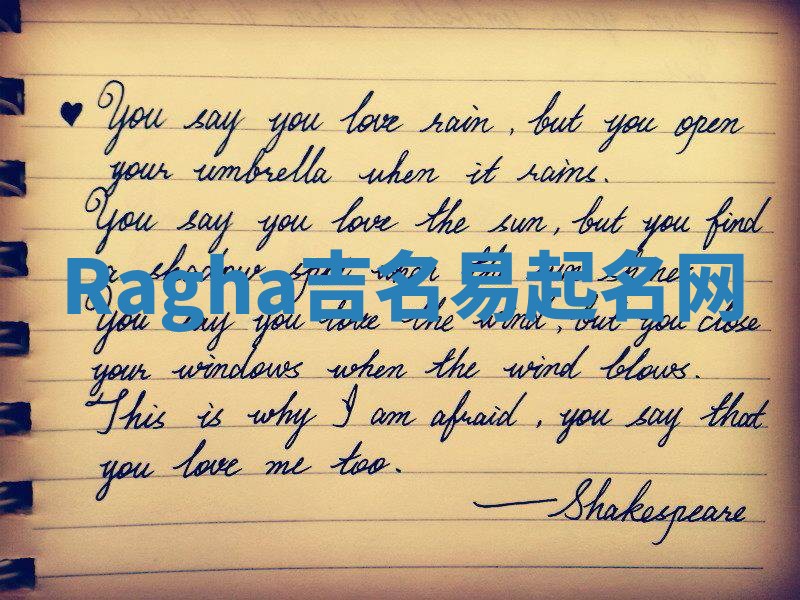 ♥ You say you love rain, but you open
your umbrella when it rains.
You say you love the sun, but you find
a shadow spot when the sun shines.
Ragha吉名易起名网
You say you love the wind, but you close
your windows when the wind blows.
This is why I am afraid, you say that
you love me too.
—Shakespeare